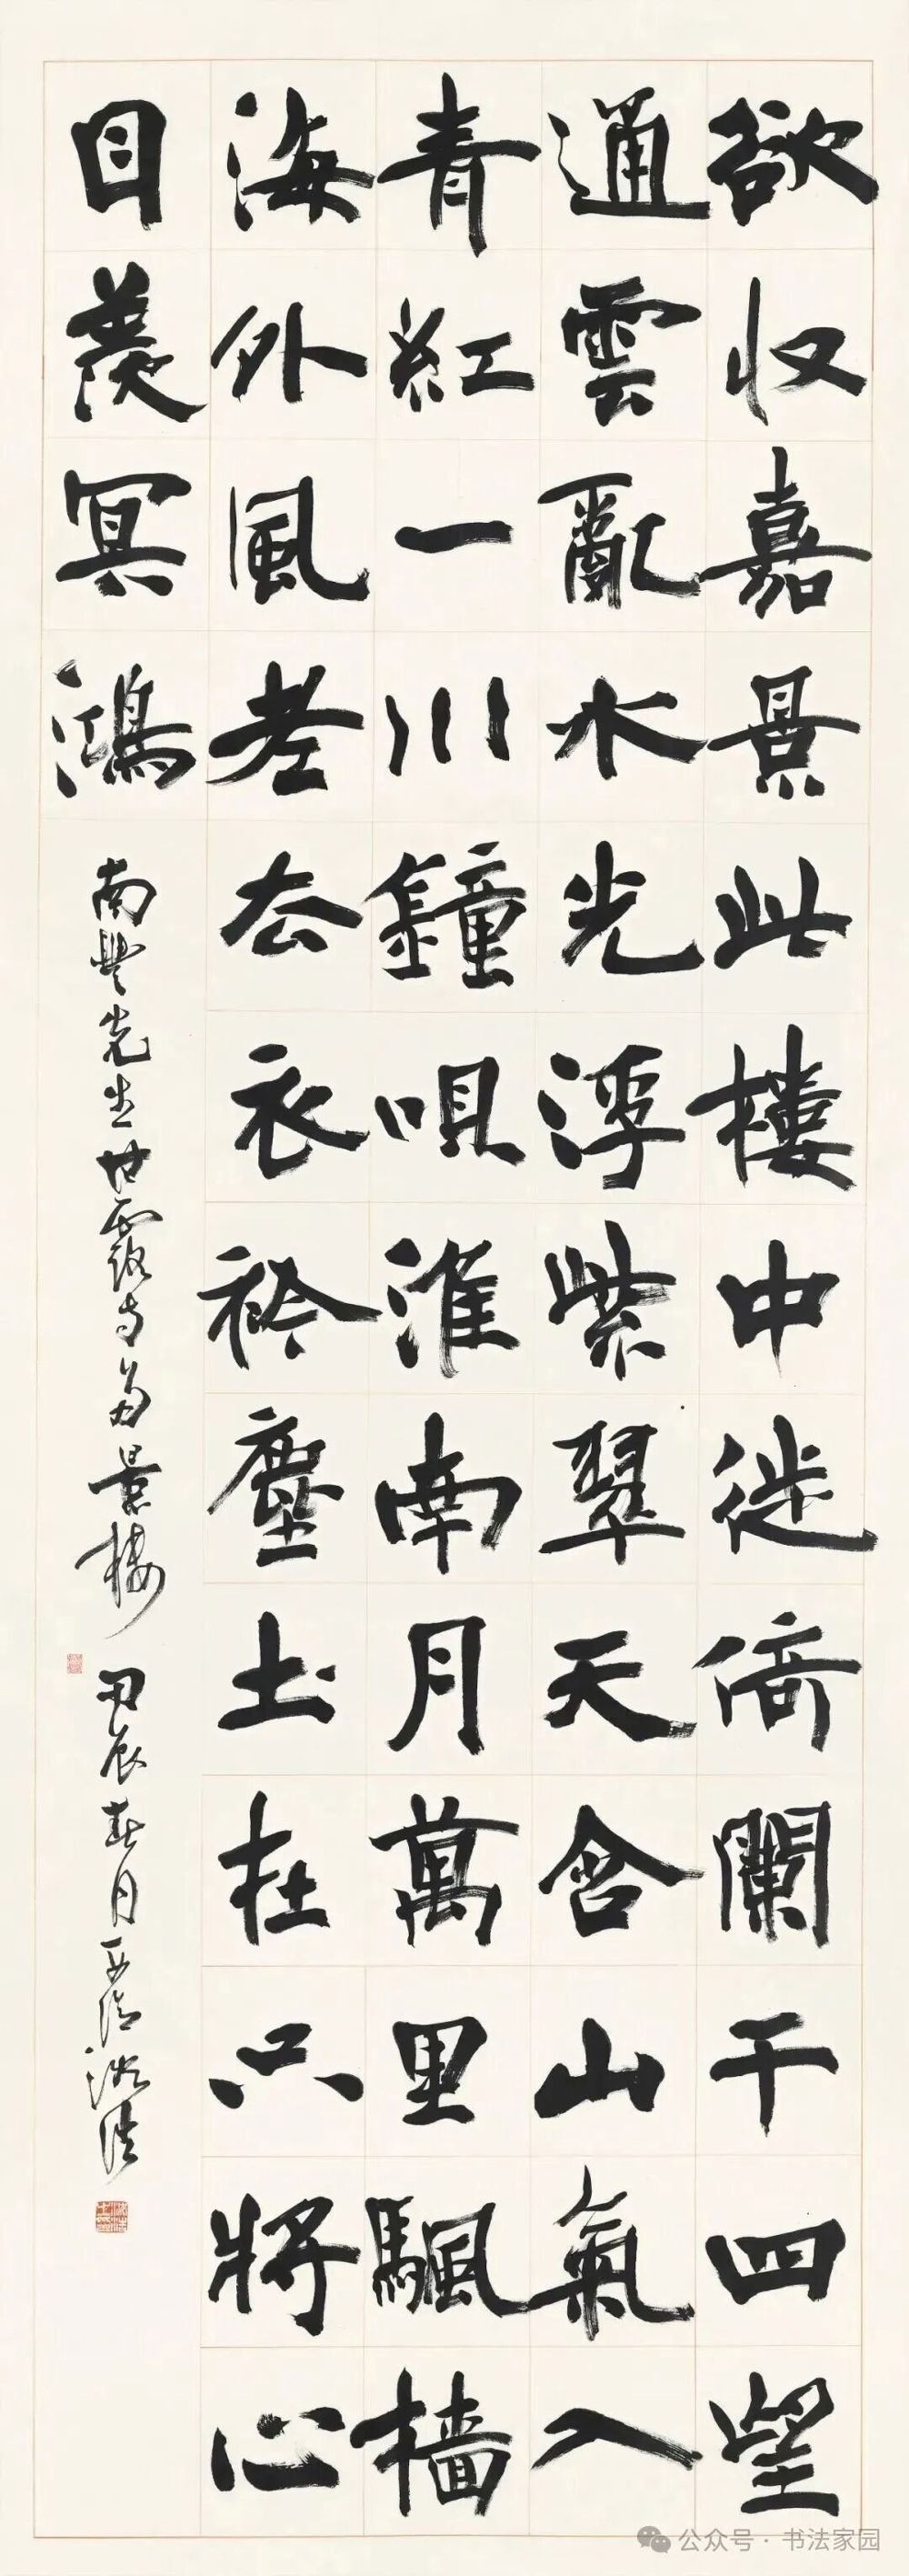 欲収嘉景此樓中徙倚闌干四望
通雲亂水光浮紫翠天含山氣入
青紅一川鐘唄淮南月萬里颿檣
海外風老去衣衿塵土在只將心
目羨冥鴻
南豐先生甘露寺多景樓 甲辰春月
公众号 · 书法家园